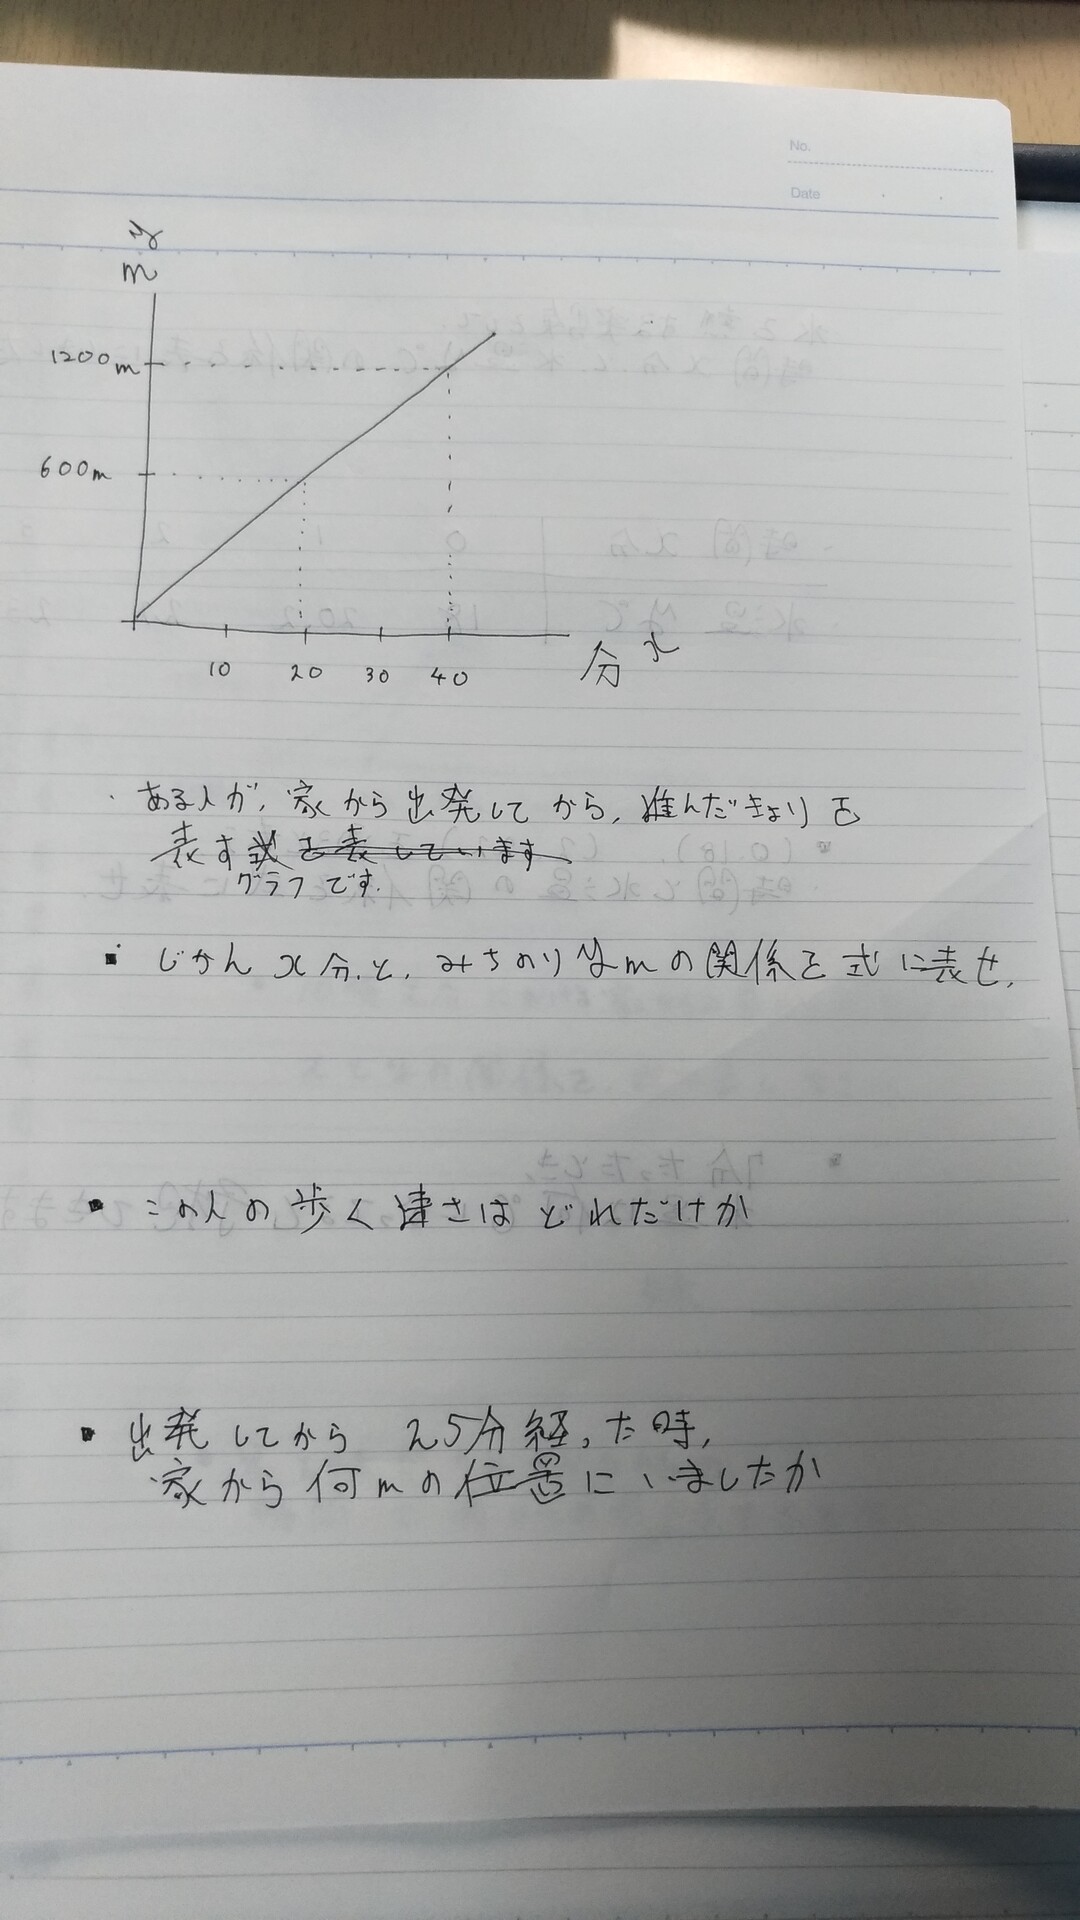 No.
Date
y
m
1200m
600m
10 20 30 40 分 x
・ある人が、家から出発してから、進んだきょりを
表す式を表しています
グラフです.
▪ じかん x分と、みちのり ymの関係を式に表せ.
▪ この人の歩く速さは どれだけか
▪ 出発してから 25分経った時,
家から何mの位置にいましたか